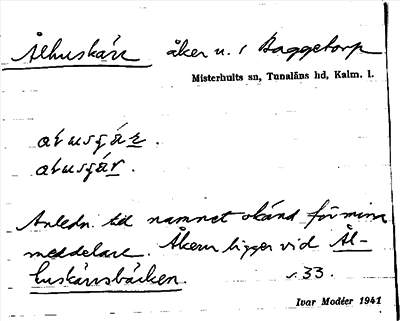 Ålhuskärr åker u. / Baggetorp
Misterhults sn, Tunaläns hd, Kalm. l.
Anledn. till namnet okänd för mina
meddelare. Åkern ligger vid Ål-
huskärrsbäcken. s. 33.
Ivar Modéer 1941